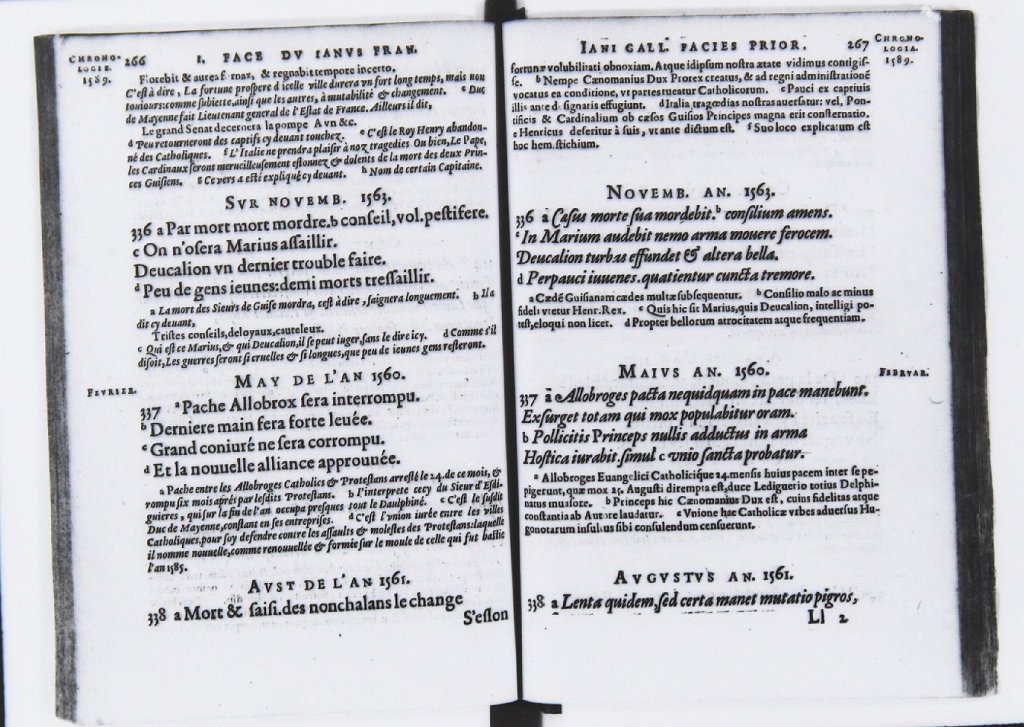 CHRONO-
LOGIE.
1589.
266 I. FACE DV IANVS FRAN.
Florebit & aurea fornax, & regnabit tempore incerto.
C'est à dire, La fortune prospere d'icelle ville durera vn fort long temps, mais non
toujours: comme subiette, ainsi que les autres, à mutabilité & changement. c Duc
de Mayenne fait Lieutenant general de l'Estat de France. Ailleurs il dit,
Le grand Senat decernera la pompe A vn &c.
d Peu retourneront des captifs cy deuant touchez. e C'est le Roy Henry abandon-
né des Catholiques. f L'Italie ne prendra plaisir à noz tragedies Ou bien, Le Pape,
les Cardinaux seront merueilleusement estonnez & dolents de la mort des deux Prin-
ces Guisiens. g Ce vers a esté expliqué cy deuant. h Nom de certain Capitaine.
SVR NOVEMB. 1563.
336 a Par mort mort mordre. b conseil, vol, pestifere.
c On n'osera Marius assaillir.
Deucalion vn dernier trouble faire.
d Peu de gens ieunes: demi morts tressaillir.
a La mort des Sieurs de Guise mordra, cest à dire, saignera longuement. b Il a
dit cy deuant,
Tristes conseils, deloyaux, cauteleux.
c Qui est ce Marius, & qui Deucalion, il se peut iuger, sans le dire icy. d Comme s'il
disoit, Les guerres seront si cruelles & si longues, que peu de ieunes gens resteront.
MAY DE L'AN 1560.
FEVRIER.
337 a Pache Allobrox sera interrompu.
b Derniere main fera forte leuée.
c Grand coniuré ne sera corrompu.
d Et la nouuelle alliance approuuée.
a Pache entre les Allobroges Catholics & Protestans arresté le 24. de ce mois, &
rompu six mois aprés par lesdits Protestans. b l'interprete cecy du Sieur d'Esdi-
guieres, qui sur la fin de l'an occupa presques tout le Dauphiné. c C'est le susdit
Duc de Mayenne, constant en ses entreprises. d C'est l'vnion iurée entre les villes
Catholiques, pour soy defendre contre les assaults & molestes des Protestans: laquelle
il nomme nouuelle, comme renouuellée & formée sur le moule de celle qui fut bastie
l'an 1585.
AVST DE L'AN 1561.
338 a Mort & saisi. des nonchalans le change
S'eslon
IANI GALL. FACIES PRIOR. 267
CHRONO-
LOGIA.
1589.
fortunæ volubilitati obnoxiam. Atque id ipsum nostra ætate vidimus contigis-
se. b Nempe Cænomanius Dux Prorex creatus, & ad regni administrationē
vocatus ea conditione, vt partes tueatur Catholicorum. c Pauci ex captiuis
illis ante designatis effugiunt. d Italia tragœdias nostras auersatur: vel, Pon-
tificis & Cardinalium ob cæsos Guisios Principes magna erit consternatio.
e Henricus deseritur à suis, vt ante dictum est. f Suo loco explicatum est
hoc hemistichium.
NOVEMB. AN. 1563.
336 a Casus morte sua mordebit. b consilium amens.
c In Marium audebit nemo arma mouere ferocem.
Deucalion turbas effundet & altera bella.
d Perpauci iuuenes. quatientur cuncta tremore.
a Cædē Guisianam cædes multæ subsequentur. b Consilio malo ac minus
fideli vtetur Henr. Rex. c Quis hic sit Marius, quis Deucalion, intelligi po-
test, eloqui non licet. d Propter bellorum atrocitatem atque frequentiam.
MAIVS AN. 1560.
FEBRVAR.
337 a Allobroges pacta nequidquam in pace manebunt.
Exsurget totam qui mox populabitur oram.
b Pollicitis Princeps nullis adductus in arma
Hostica iurabit. simul c vnio sancta probatur.
a Allobroges Euangelici Catholicique 24. mensis huius pacem inter se pe-
pigerunt, quæ mox 25. Augusti dirempta est, duce Lediguerio totius Delphi-
natus inuasore. b Princeps hic Cænomanius Dux est, cuius fidelitas atque
constantia ab Autore laudatur. c Vnione hac Catholicæ vrbes aduersus Hu-
gonotarum insultus sibi consulendum censuerunt.
AVGVSTVS AN. 1561.
338 a Lenta quidem, sed certa manet mutatio pigros,
Ll 2